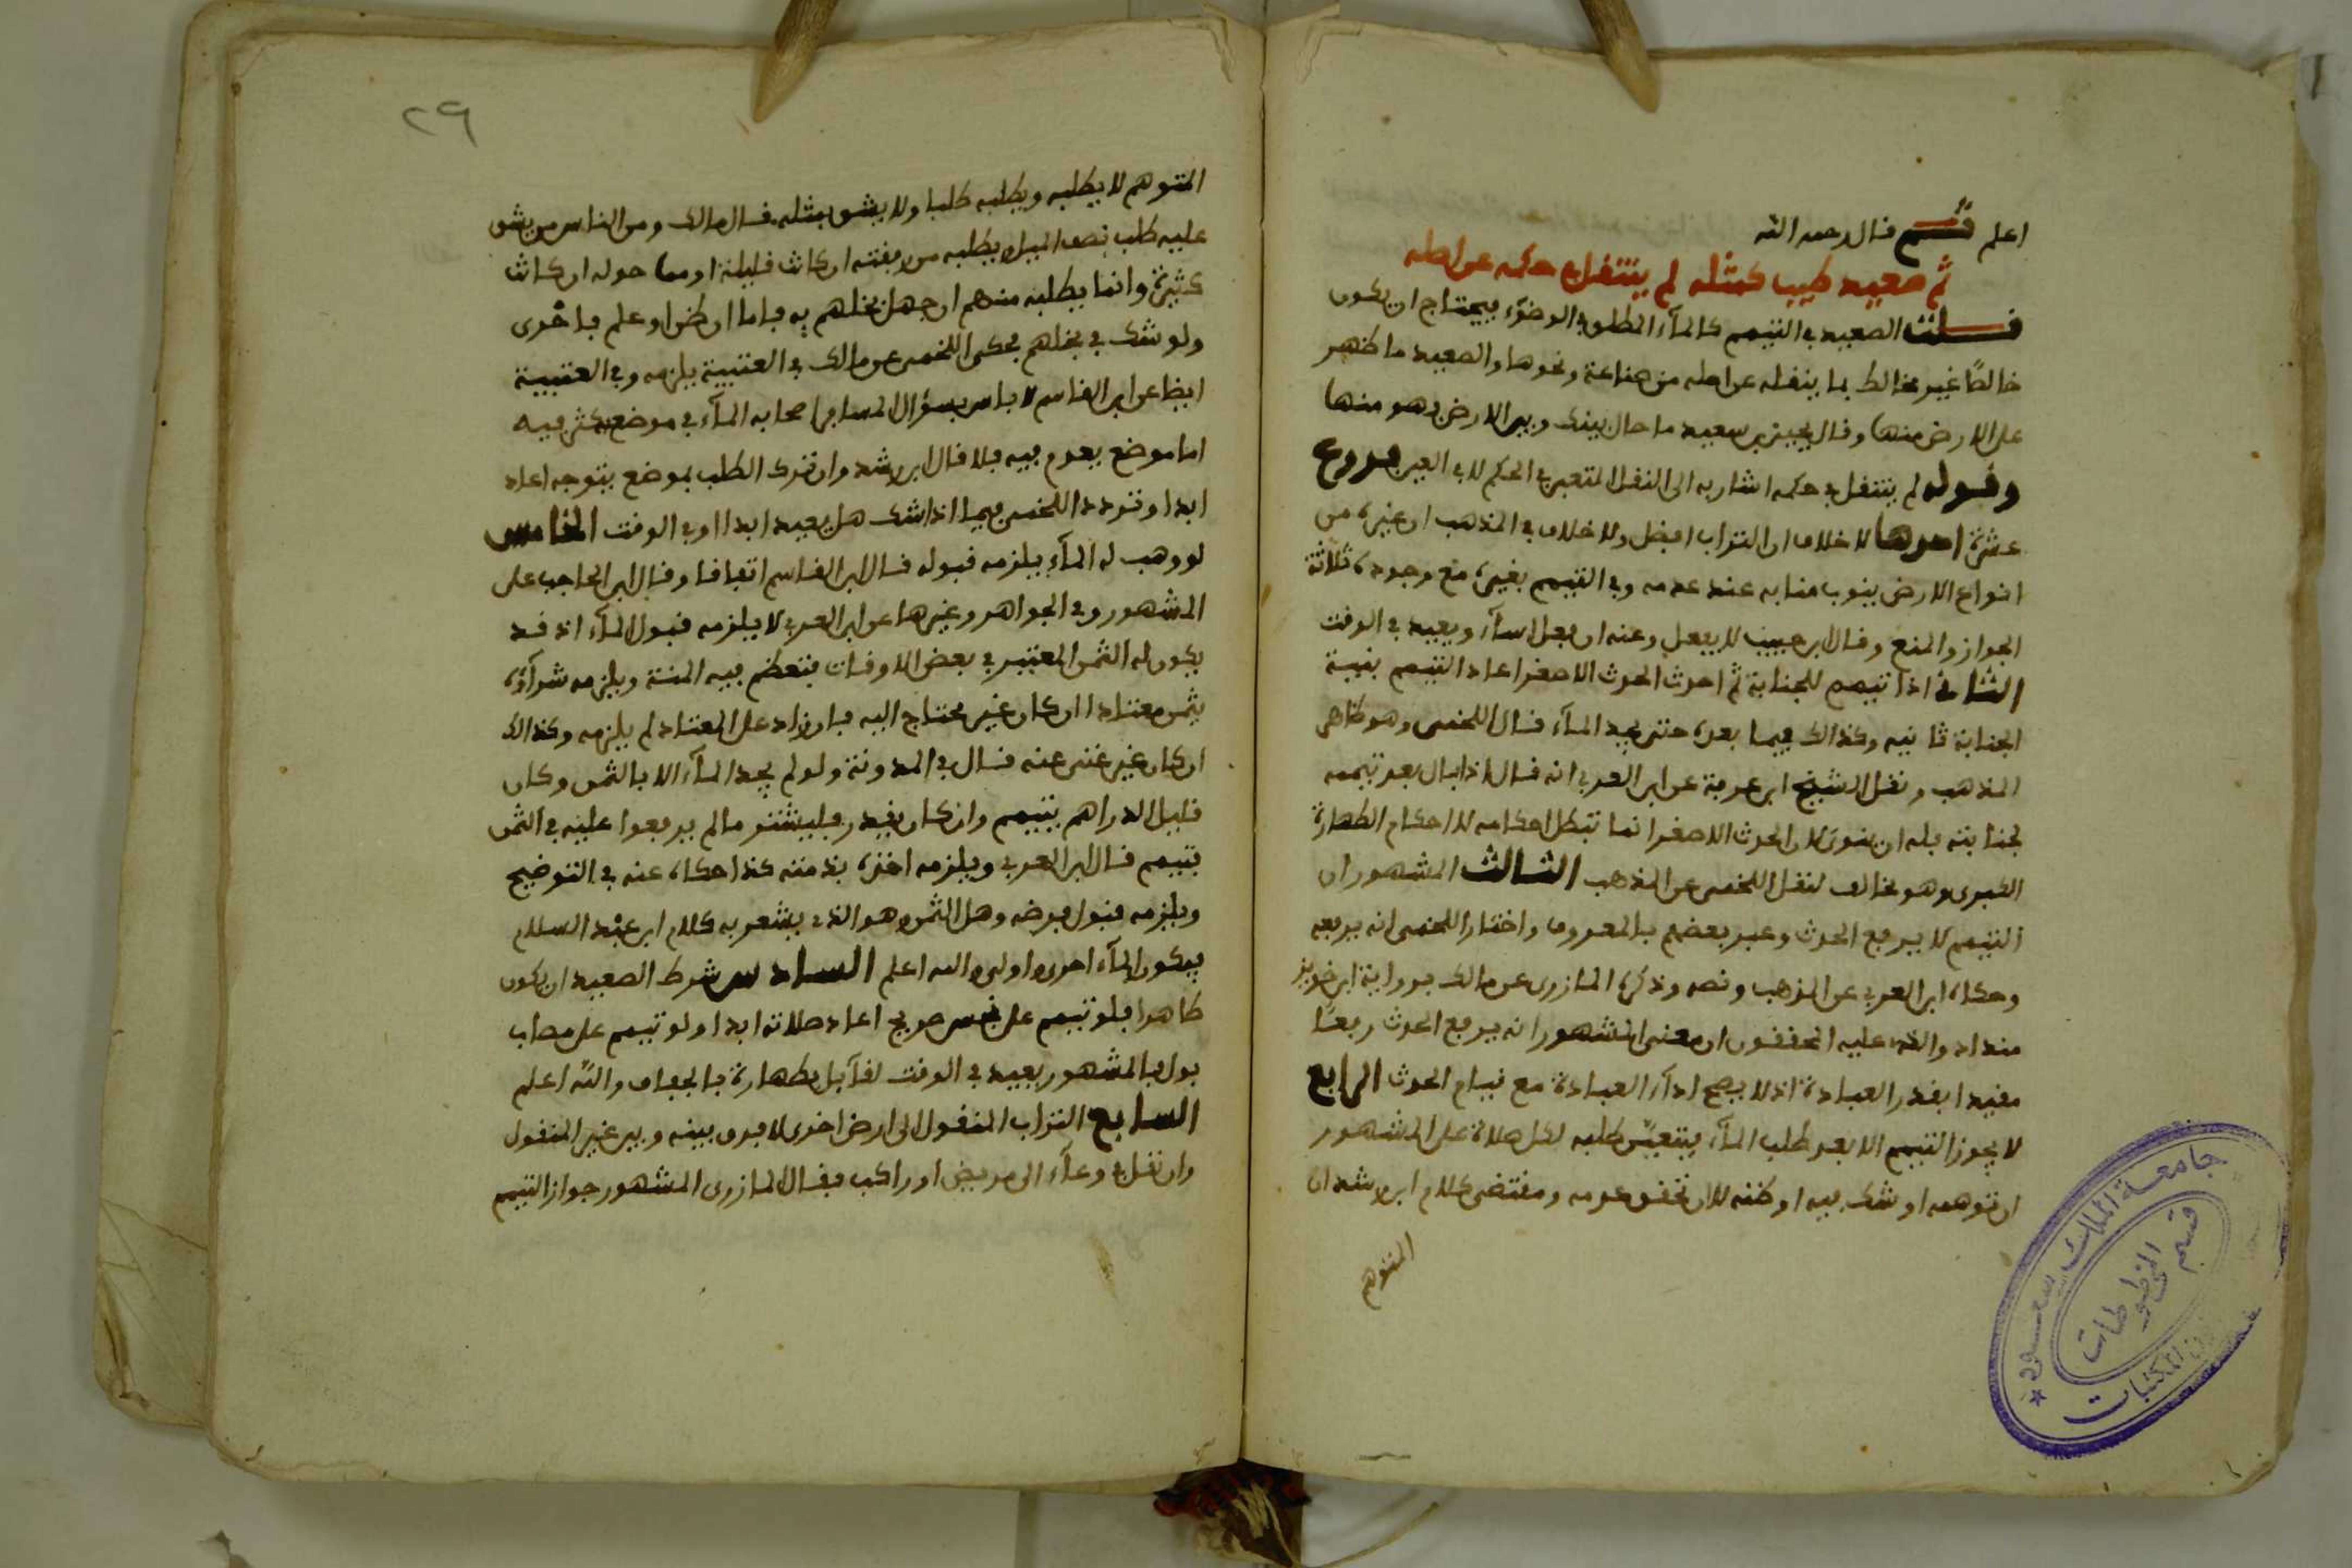 اعلم ثم قال رحمه الله
ثم صعيد طيب كمثله لم ينتقل حكمه عن اصله
قلت الصعيد في التيمم كالمآء المطلق في الوضوء فيحتاج ان يكون
خالصًا غير مخالط بما ينقله عن اصله من صناعة ونحوها والصعيد ما ظهر
على الارض منها وقال يحيى بن سعيد ما حال بينك وبين الارض فهو منها
وقوله لم ينتقل في حكمه اشار به الى النقل المتعين في الحكم لا في العين فروع
عشرة احدها لا خلاف ان التراب افضل ولا خلاف في المذهب ان غيره من
انواع الارض ينوب منابه عند عدمه وفي التيمم بغيره مع وجوده ثلاثة
الجواز والمنع وقال ابن حبيب لا يفعل وعنه ان فعل اسآء ويعيد في الوقت
الثاني اذا تيمم للجنابة ثم احدث الحدث الاصغر اعاد التيمم بنية
الجنابة ثانيه وكذالك فيما بعده حتى يجد المآء قال اللخمي وهو ظاهر
المذهب ونقل الشيخ ابن عرفة عن ابن العربي انه قال اذا بال بعد تيممه
لجنابته فله ان ينوي لان الحدث الاصغر انما تبطل احكامه لا احكام الطهارة
الكبرى وهو مخالف لنقل اللخمي عن المذهب الثالث المشهور ان
التيمم لا يرفع الحدث وعبر بعضهم بالمعروف واختار اللخمي انه يرفعه
وحكاه ابن العربي عن المذهب ونصه وذكره المازري عن مالك برواية ابن خويز
منداد والذي عليه المحققون ان معنى المشهور انه يرفع الحدث رفعًا
مقيدا بقدر العبادة اذ لا يصح ادآء العبادة مع قيام الحدث الرابع
لا يجوز التيمم الا بعد طلب المآء فيتعيّن طلبه لكل صلاة على المشهور
ان توهمه او شك فيه او ظنه لا ان تحقق عدمه ومقتضى كلام ابن رشد ان
المتوهم
جامعة الملك سعود
قسم المخطوطات
المكتبات
٢٩
المتوهم لا يطلبه ويطلبه طلبا ولا يشق بمثله قال مالك ومن الناس من يشق
عليه طلب نصف الميل ويطلبه من رفقته ان كانت قليلة او مما حوله ان كانت
كثيرة وانما يطلبه منهم ان جهل بخلهم به فاما ان ظن او علم فاحرى
ولو شك في بخلهم فحكى اللخمي عن مالك في العتبية يلزمه وفي العتبية
ايضا عن ابن القاسم لا باس بسؤال المسافر اصحابه المآء في موضع يكثر فيه
اما موضع يعدم فيه فلا قال ابن رشد وان ترك الطلب بموضع يتوجه اعاد
ابدا وتردد اللخمي فيما اذا شك هل يعيد ابدا او في الوقت الخامس
لو وهب له المآء يلزمه قبوله قال ابن القاسم اتفاقا وقال ابن الحاجب على
المشهور وفي الجواهر وغيرها عن ابن العربي لا يلزمه قبول المآء اذ قد
يكون له الثمن المعتبر في بعض الاوقات فتعظم فيه المنة ويلزمه شرآؤه
بثمن معتاد اان كان غير محتاج اليه فان زاد على المعتاد لم يلزمه وكذالك
ان كان غير غني عنه قال في المدونة ولو لم يجد المآء الا بالثمن وكان
قليل الدراهم يتيمم وان كان يقدر فليشتر ما لم يرفعوا عليه في الثمن
فيتيمم قال ابن العربي ويلزمه اخذه بذمته كذا حكاه عنه في التوضيح
ويلزمه قبول قرضه وهل الثمن وهو الذي يشعر به كلام ابن عبد السلام
فيكون المآء احرى واولى والله اعلم السادس شرط الصعيد ان يكون
طاهرا فلو تيمم على نجس صريح اعاد صلاته ابدا ولو تيمم على مصاب
بول فالمشهور يعيد في الوقت لقآيل بطهارة بالجفاف والله اعلم
السابع التراب المنقول الى ارض اخرى لا فرق بينه وبين غير المنقول
وان نقل في وعآء الى مريض او راكب فقال المازري المشهور جواز التيمم